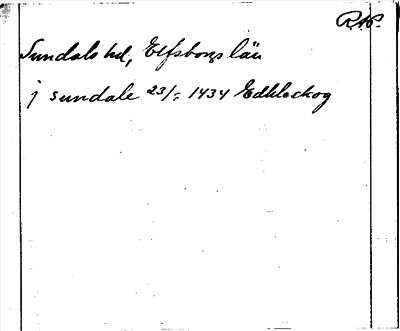 R.A.P.
Sundals hd, Elfsborgs län
j sundale 23/5 1434 Edhleskog